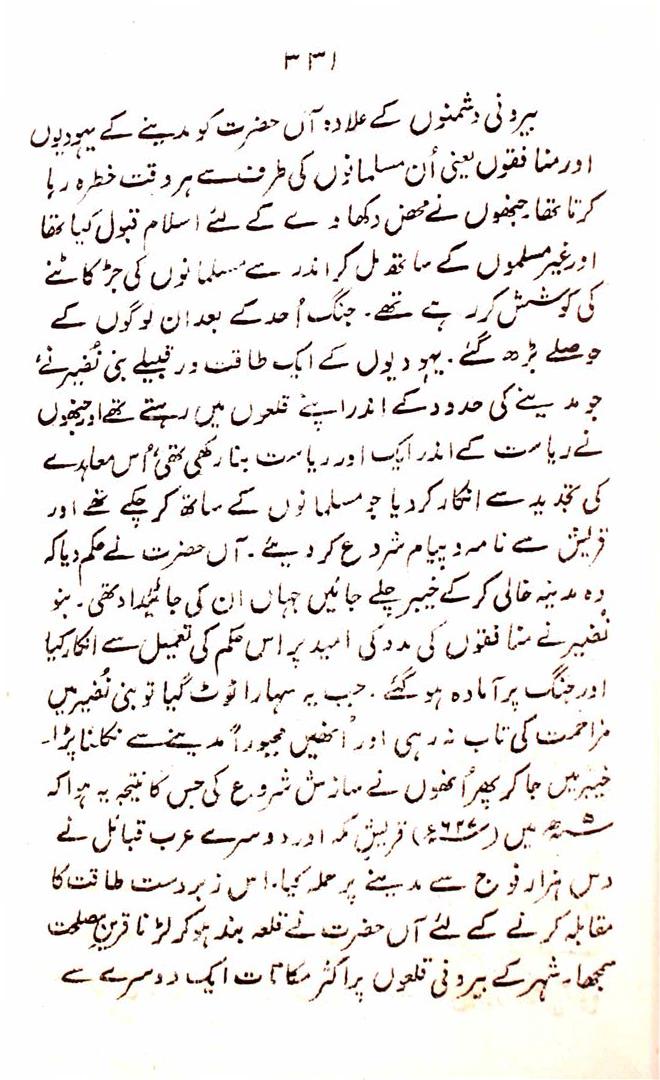 ۳۳۱
بیرونی دشمنوں کے علاوہ آں حضرت کو مدینے کے یہودیوں
اور منافقوں یعنی اُن مسلمانوں کی طرف سے ہر وقت خطرہ رہا
کرتا تھا جنھوں نے محض دکھاوے کے لئے اسلام قبول کیا تھا
اور غیر مسلموں کے ساتھ مل کر اندر سے مسلمانوں کی جڑ کاٹنے
کی کوشش کر رہے تھے۔ جنگ اُحد کے بعد ان لوگوں کے
حوصلے بڑھ گئے۔ یہودیوں کے ایک طاقت ور قبیلے بنی نُضیر نے
جو مدینے کی حدود کے اندر اپنے قلعوں میں رہتے تھے اور جنھوں
نے ریاست کے اندر ایک اور ریاست بنا رکھی تھی اُس معاہدے
کی تجدید سے انکار کر دیا جو مسلمانوں کے ساتھ کر چکے تھے اور
قریش سے نامہ و پیام شروع کر دیئے۔ آں حضرت نے حکم دیا کہ
وہ مدینہ خالی کر کے خیبر چلے جائیں جہاں ان کی جائیداد تھی۔ بنو
نُضیر نے منافقوں کی مدد کی امید پر اس حکم کی تعمیل سے انکار کیا
اور جنگ پر آمادہ ہو گئے۔ جب یہ سہارا ٹوٹ گیا تو بنی نُضیر میں
مزاحمت کی تاب نہ رہی اور اُنھیں مجبوراً مدینے سے نکلنا پڑا۔
خیبر میں جا کر پھر اُنھوں نے سازش شروع کی جس کا نتیجہ یہ ہوا کہ
۵ھ میں (۶۲۷ء) قریشِ مکہ اور دوسرے عرب قبائل نے
دس ہزار فوج سے مدینے پر حملہ کیا۔ اس زبردست طاقت کا
مقابلہ کرنے کے لئے آں حضرت نے قلعہ بند ہو کر لڑنا قرینِ مصلحت
سمجھا۔ شہر کے بیرونی قلعوں پر اکثر مکانات ایک دوسرے سے